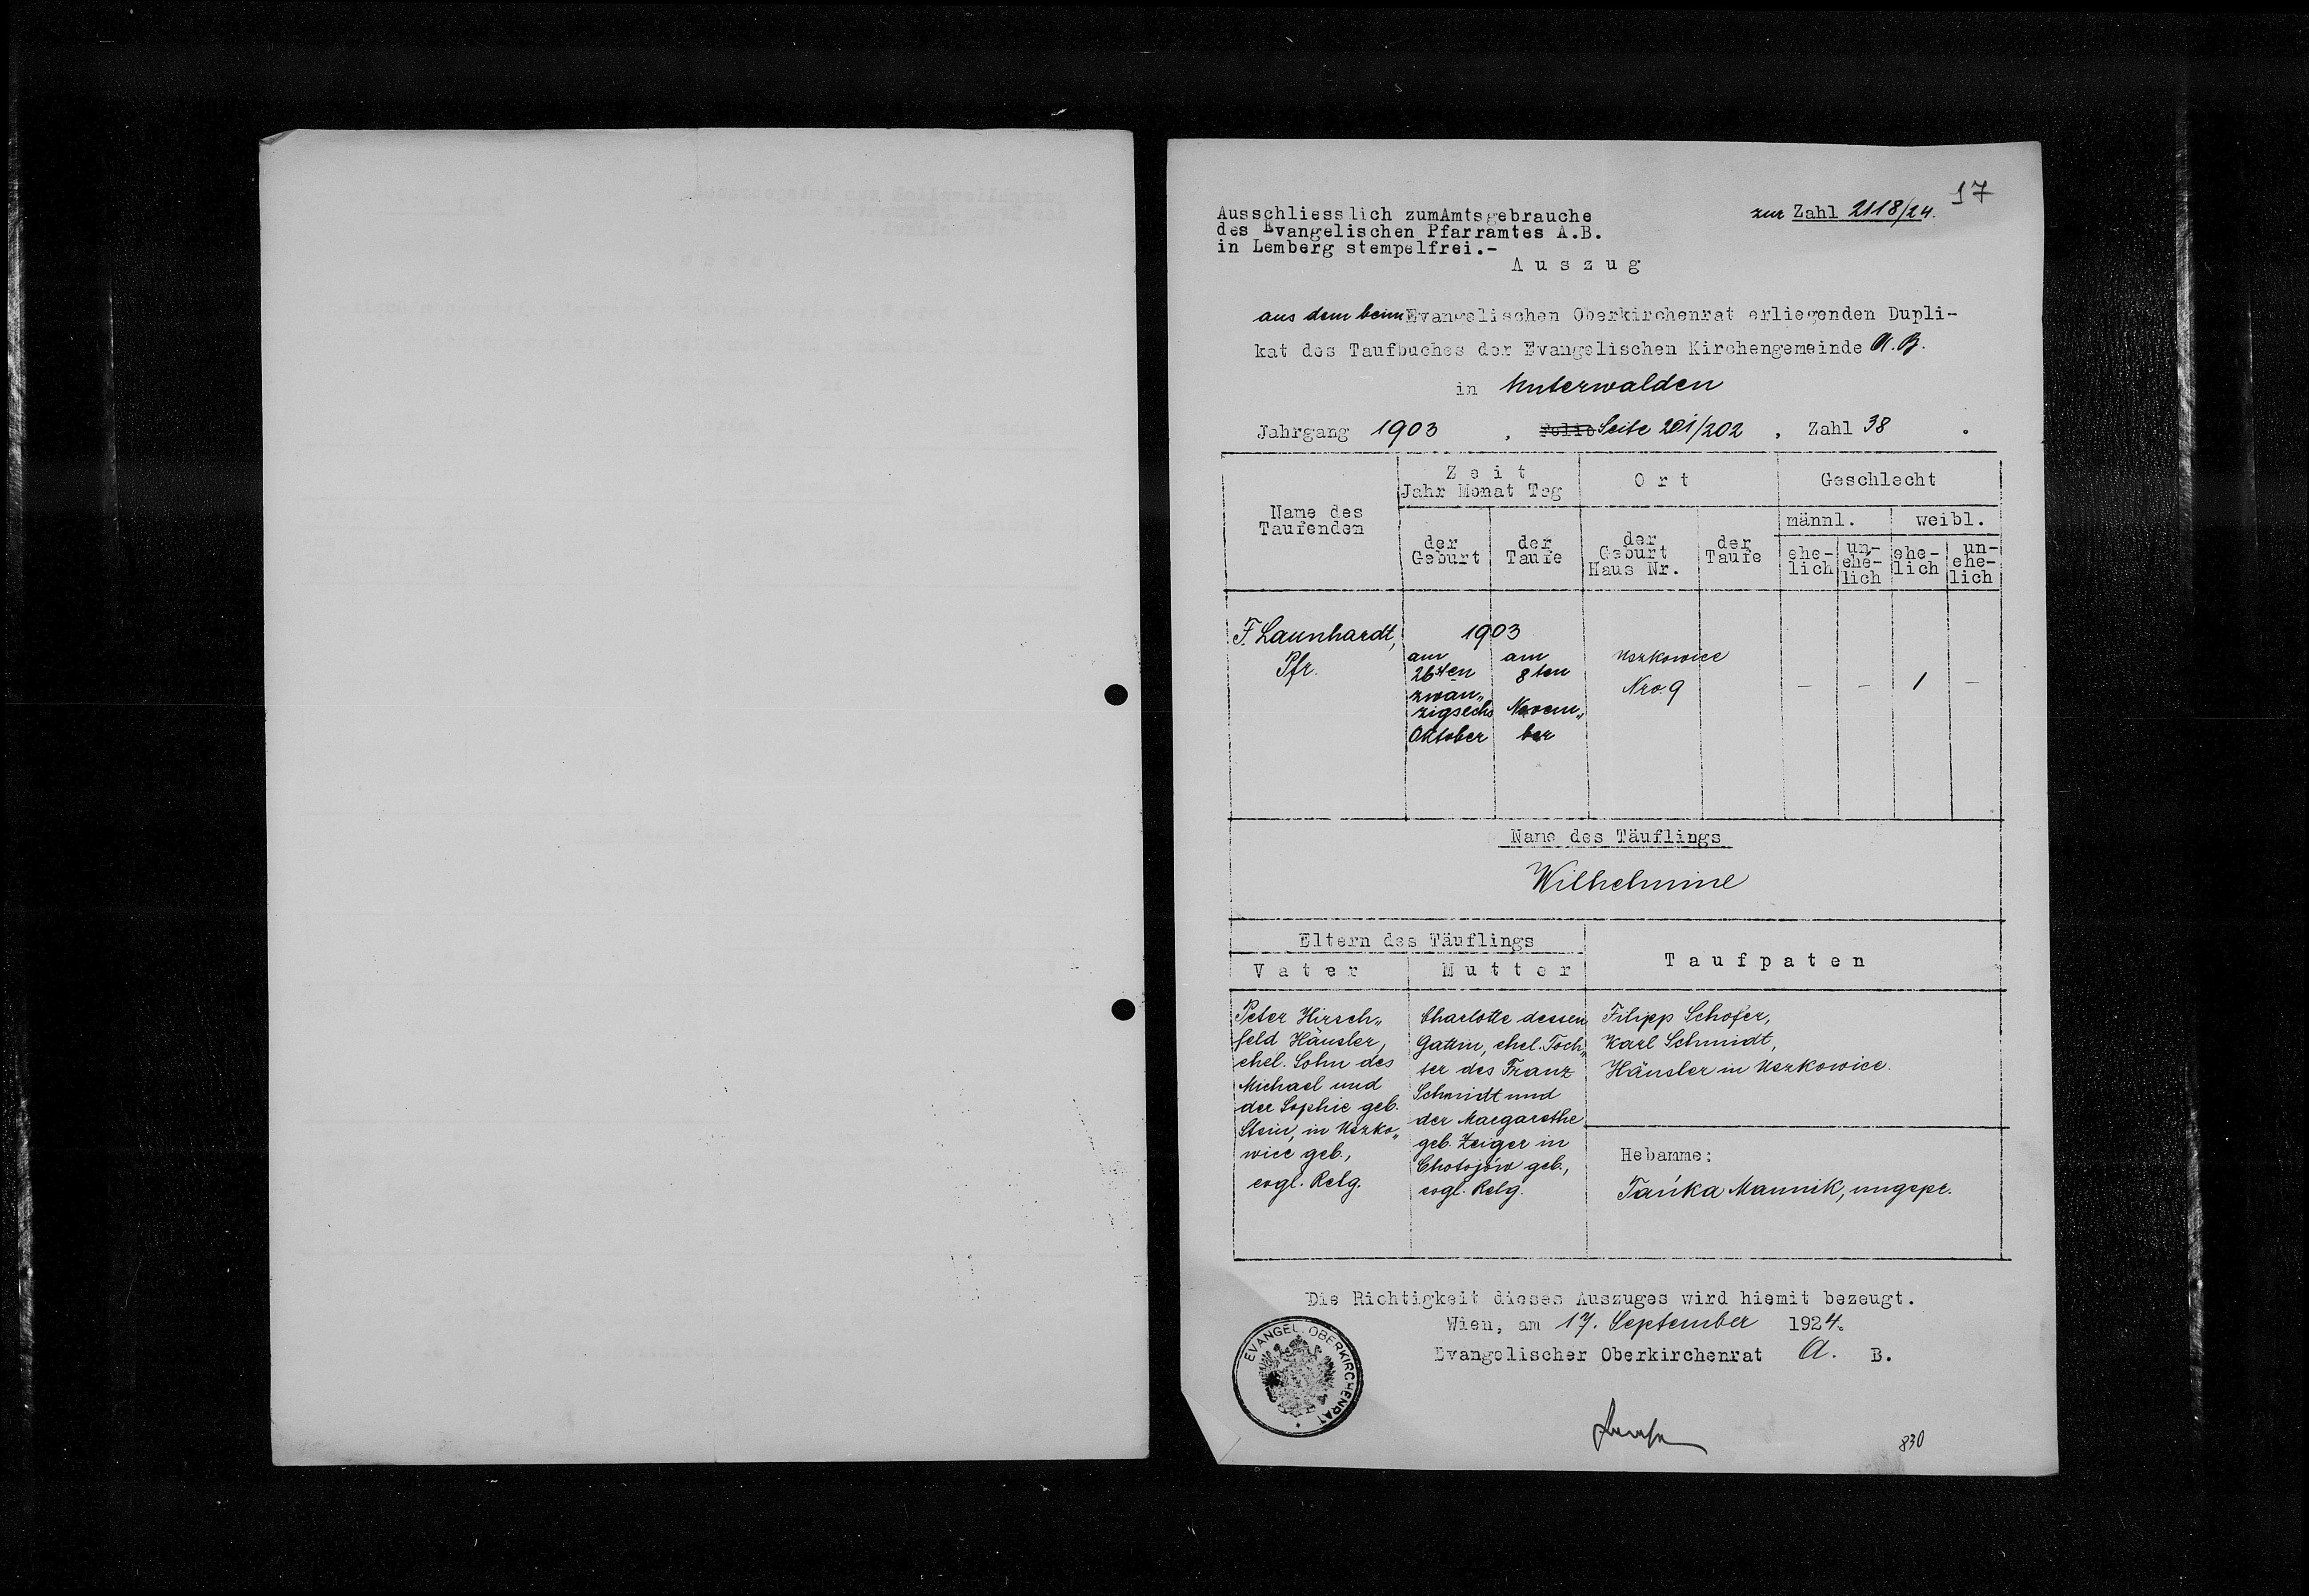 17
Ausschliesslich zumAmtsgebrauche
zur Zahl 2118/24.
des Evangelischen Pfarramtes A.B.
in Lemberg stempelfrei.-
Auszug
aus dem beim Evangelischen Oberkirchenrat erliegenden Dupli-
kat des Taufbuches der Evangelischen Kirchengemeinde A.B.
in Unterwalden
Jahrgang 1903 , Folio Seite 201/202 , Zahl 38 .
Name des
Taufenden
Zeit
Jahr Monat Tag
Ort
Geschlecht
männl.
weibl.
der
Geburt
der
Taufe
der
Geburt
Haus Nr.
der
Taufe
ehe-
lich
un-
ehe-
lich
ehe-
lich
un-
ehe-
lich
F. Launhardt,
Pfr.
1903
am
26sten
zwan„
zigsechs
Oktober
am
8ten
Novem„
ber
Uszkowice
Nro. 9
— — 1 —
Name des Täuflings
Wilhelmine
Eltern des Täuflings
Vater
Mutter
Taufpaten
Peter Hirsch„
feld Häusler,
ehel. Sohn des
Michael und
der Sophie geb.
Stein, in Uszko„
wice geb.,
evgl. Relg.
Charlotte dessen
Gattin, ehel. Toch„
ter des Franz
Schmidt und
der Margarethe
geb. Zeiger in
Chotojów geb.,
evgl. Relg.
Filipp Schofer,
Karl Schmidt,
Häusler in Uszkowice.
Hebamme:
Tańka Mannik, ungepr.
Die Richtigkeit dieses Auszuges wird hiemit bezeugt.
Wien, am 17. September 1924.
Evangelischer Oberkirchenrat A. B.
EVANGEL. OBERKIRCHENRAT
830